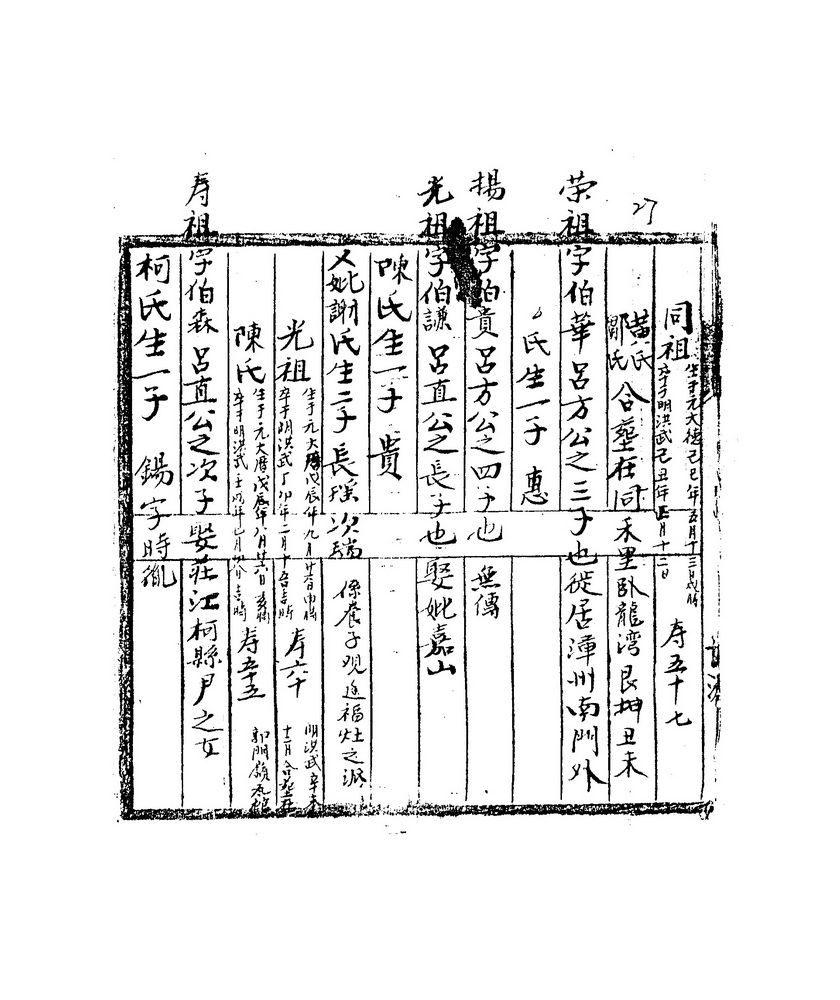 27
同祖 生于元大德己巳年五月十三戌時 卒于明洪武己丑年五月十二日 寿五十七
黄氏 鄒氏 合塟在同禾里卧龍湾艮坤丑未
荣祖字伯華吕方公之三子也徙居漳州南門外
氏生一子 惠
揚祖字伯貴吕方公之四子也 無傳
光祖字伯謙吕直公之長子也娶妣嘉山
陳氏生一子 貴
又妣謝氏生二子長瑶次瑞 係養子观進福灶之派
光祖 生于元大曆戊辰年九月廿日申時 卒于明洪武丁卯年二月十五吉時 寿六十 明洪武辛未 十二月合塟在
陳氏 生于元大曆戊辰年八月廿日 卒于明洪武壬戌年 月 吉時 寿五十五
寿祖字伯森吕直公之次子娶莊江柯縣尹之女
柯氏生一子 錫字時胤